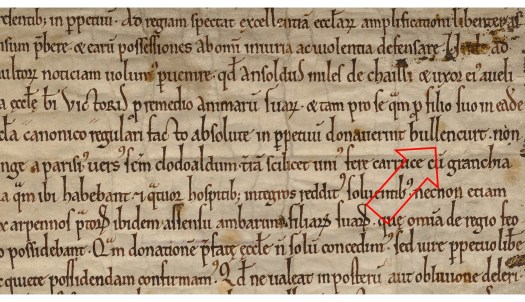 elentib; in ppetuū. Ad regiam spectat excellentiā eccłarꝝ amplificationi libenter as
nsum p̄bere & earū possessiones ab omi iniuria ac violentia defensare. ad
ultorꝝ noticiam uolum' puenire. qđ Ansoldus miles de chailli & uxor ei' aueli
a eccłę bi Victoris p remedio animarū suarꝝ. & tam pro se qm̄ p filio suo in eadē
ccła canonico regulari facto absolute in ppetuū donauerint bullencurt. non
nge a parisi' uers' scm̄ clodoaldum. t'rā scilicet uni' fere carruce cū granchia
a qm̄ ibi habebant. & quatuor hospites integros reddit' soluentib;. necnon etiam
arpennos p̄torꝝ ibidem. assensu ambarum filiarꝝ suarꝝ. que omīa de regio feo
o possidebant. Qm̄ donationē p̄fatę eccłę n̄ solū concedim'. sed iure ppetuo liber
& quiete possidendam confirmam'. Qđ ne ualeat in posterū aut obliuione deleri